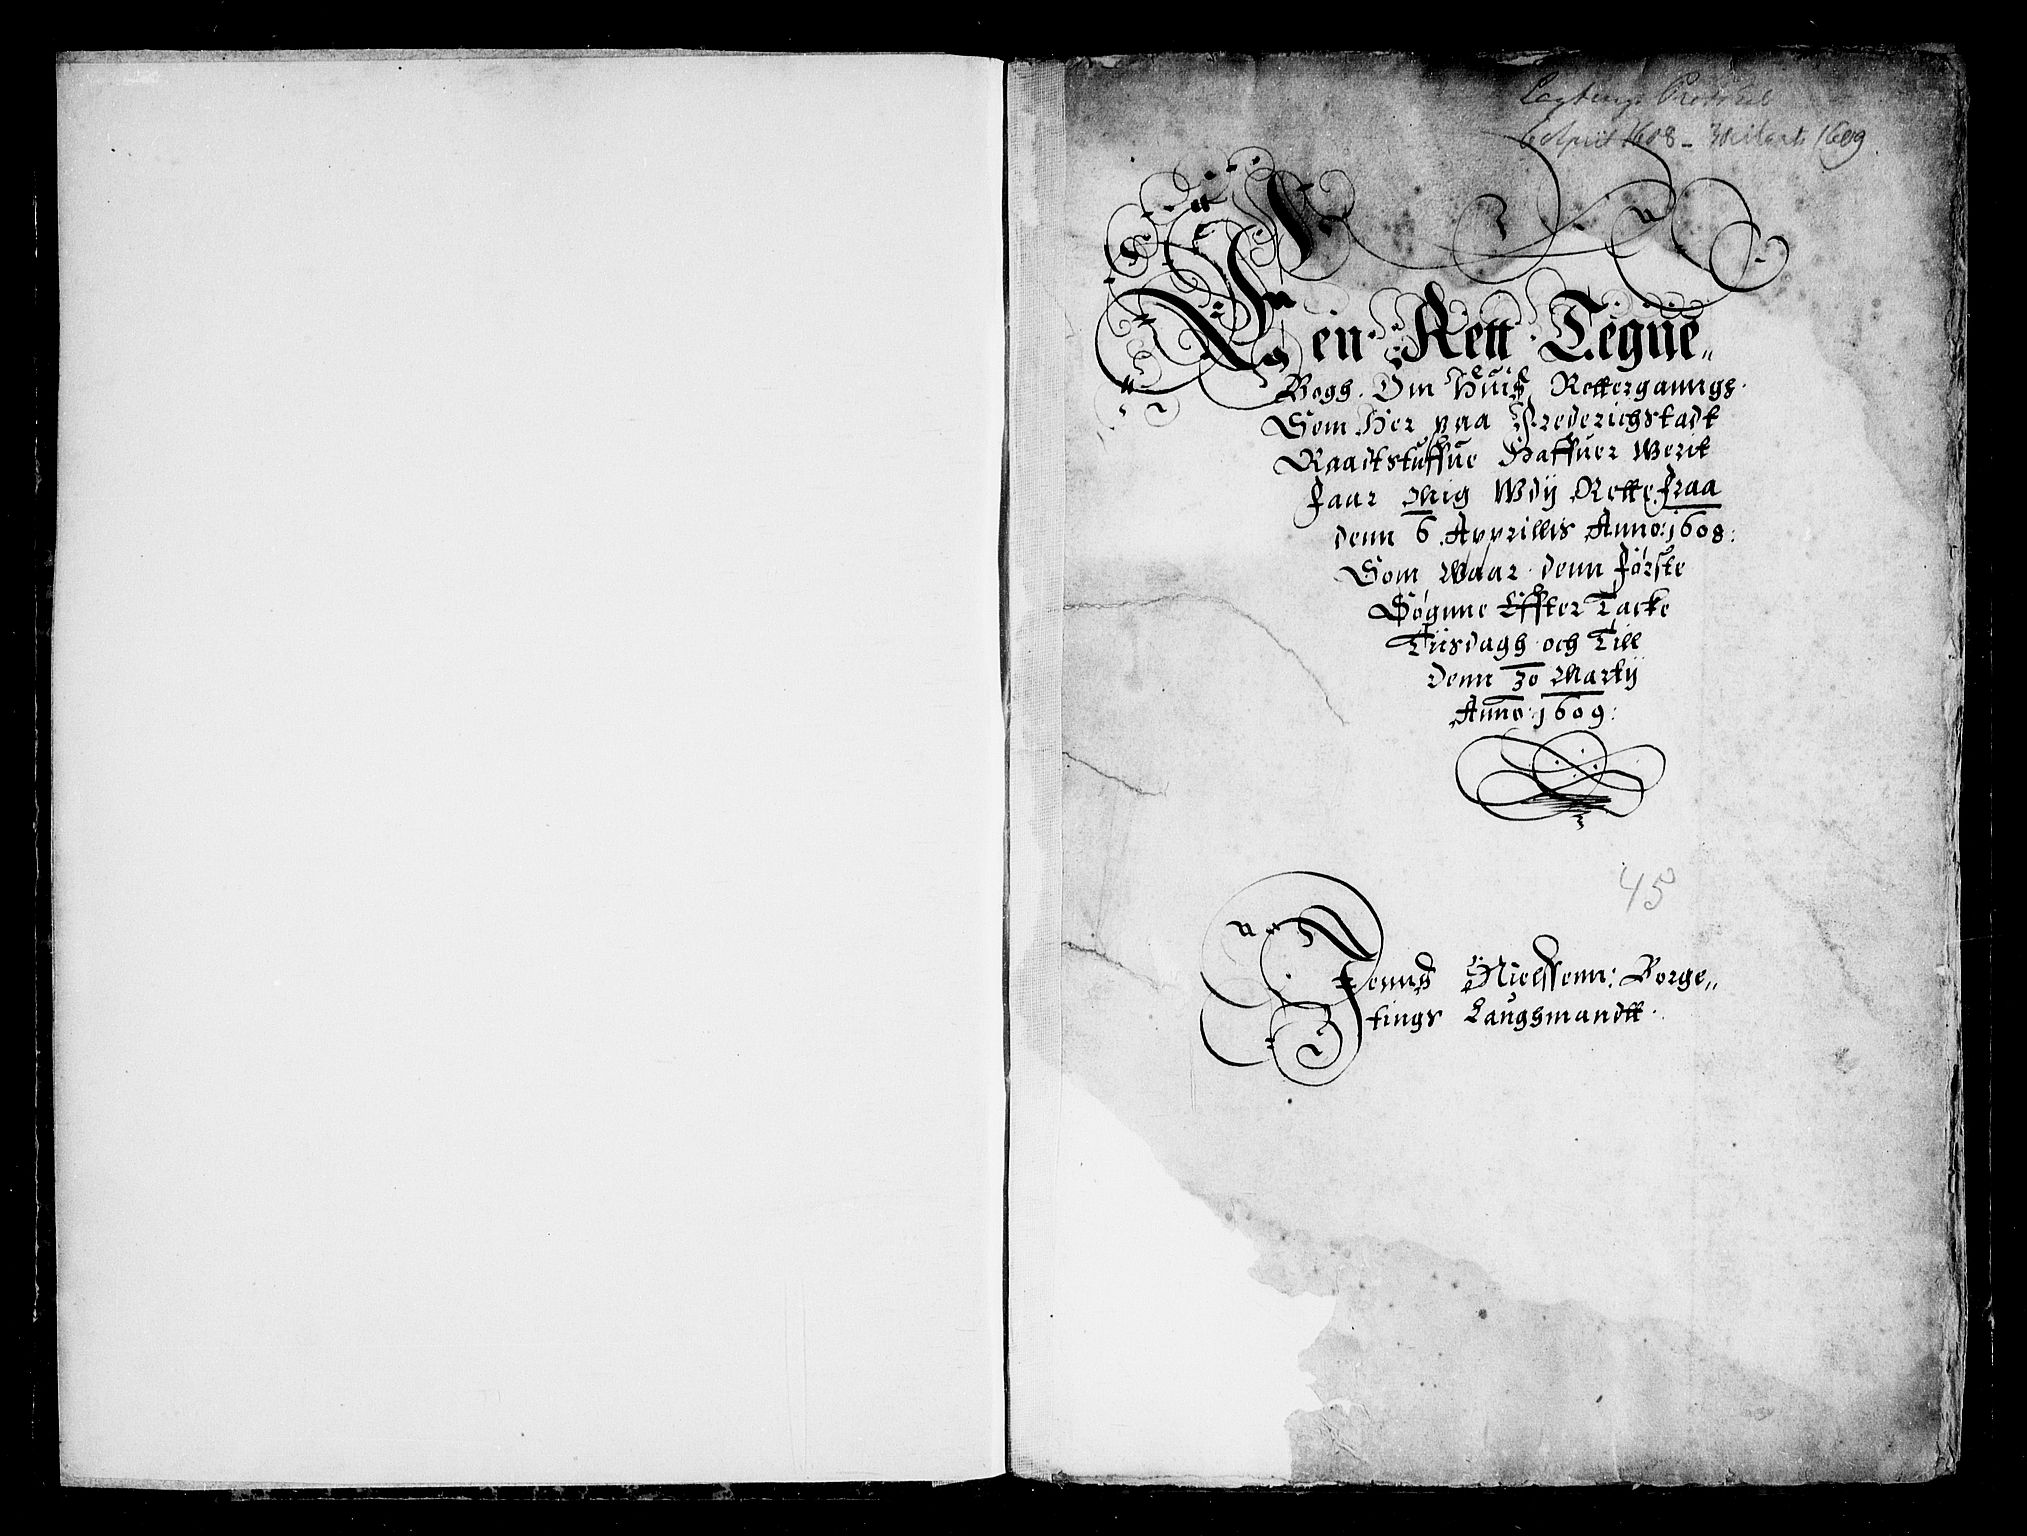 Lagtings Protokol
6 April 1608 – 30 Marts 1609.
En Rett Tegne„
Bogh. Om Huis Rettergannngs
Som Her paa Frederichstadt
Raadtstuffue Haffuer Werit
Faar Mig Wdij Rette fraa
denn 6 Apprillis Anno: 1608:
Som Waar denn Første
Søgnne Effter Tacke
Tiisdagh och Till
denn 30 Martij
Anno: 1609:
45
Jenns Nielssenn: Borge„
tings Laughmandtt.